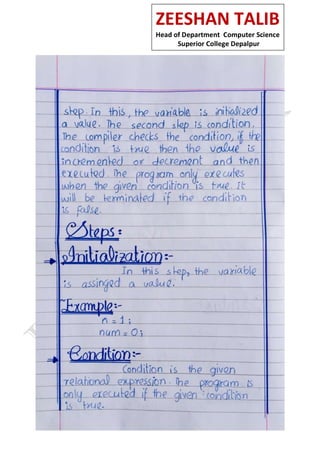 ZEESHAN TALIB
Head of Department Computer Science
Superior College Depalpur
step. In this, the variable is initialized
a value. The second step is condition.
The compiler checks the condition, if the
condition is true then the value is
incremented or decrement and then
executed. The program only executes
when the given condition is true. It
will be terminated if the condition
is false.
Steps:
Initialization:-
In this step, the variable
is assinged a value.
Example:-
n = 1;
num = 0;
Condition:-
Condition is the given
relational expression. The program is
only executed if the given condition
is true.